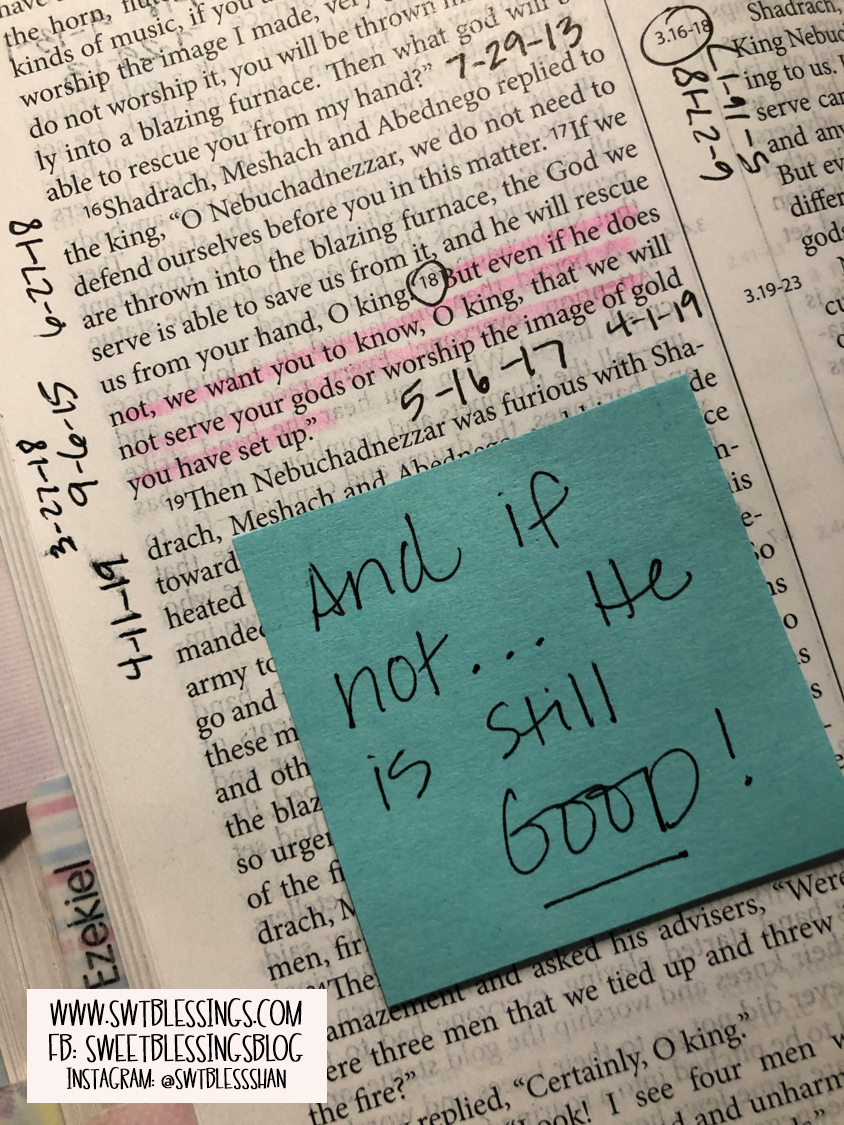 the horn, flu
kinds of music, if you
worship the image I made, very
do not worship it, you will be thrown
ly into a blazing furnace. Then what god will b
able to rescue you from my hand?” 7-29-13
16Shadrach, Meshach and Abednego replied to
the king, “O Nebuchadnezzar, we do not need to
defend ourselves before you in this matter. 17If we
are thrown into the blazing furnace, the God we
serve is able to save us from it, and he will rescue
us from your hand, O king. 18But even if he does
not, we want you to know, O king, that we will
not serve your gods or worship the image of gold
you have set up.” 5-16-17 4-1-19
19Then Nebuchadnezzar was furious with Sha-
drach, Meshach and Abedneg
toward
heated
manded
army to
go and
these m
and oth
the blaz
so urgen
of the fi
drach, M
men, fir
de
ce
n-
is
e-
So
ns
o
s
s
The
amazement and asked his advisers, “Were
ere three men that we tied up and threw
the fire?”
replied, “Certainly, O king.”
ook! I see four men w
d and unharm
6-27-18
9-6-15
3-27-18
4-11-19
3.16-18
5-16-17
6-27-18
Shadrach,
King Nebuc
ing to us. I
serve can
and any
But ev
differ
gods
3.19-23
cu
And if
not... He
is still
GOOD!
Ezekiel
WWW.SWTBLESSINGS.COM
FB: SWEETBLESSINGSBLOG
INSTAGRAM: @SWTBLESSSHAN